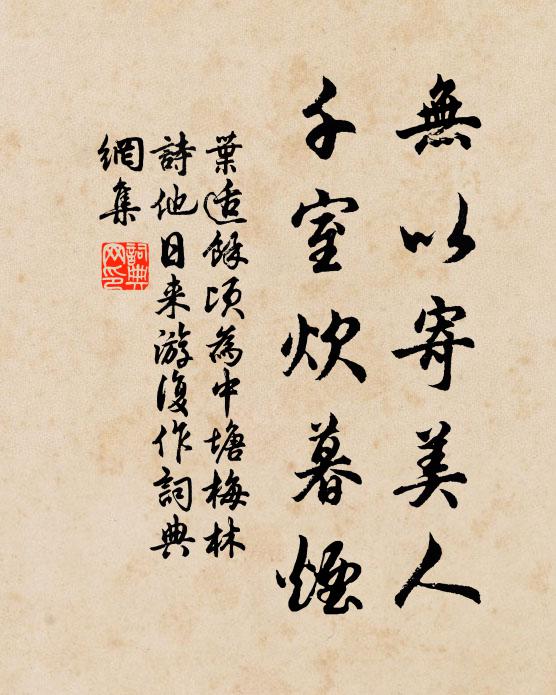 無以寄美人
千室炊暮煙
葉适餘頃為中塘梅林
詩他日来游復作詞典
網集
詞典
网印